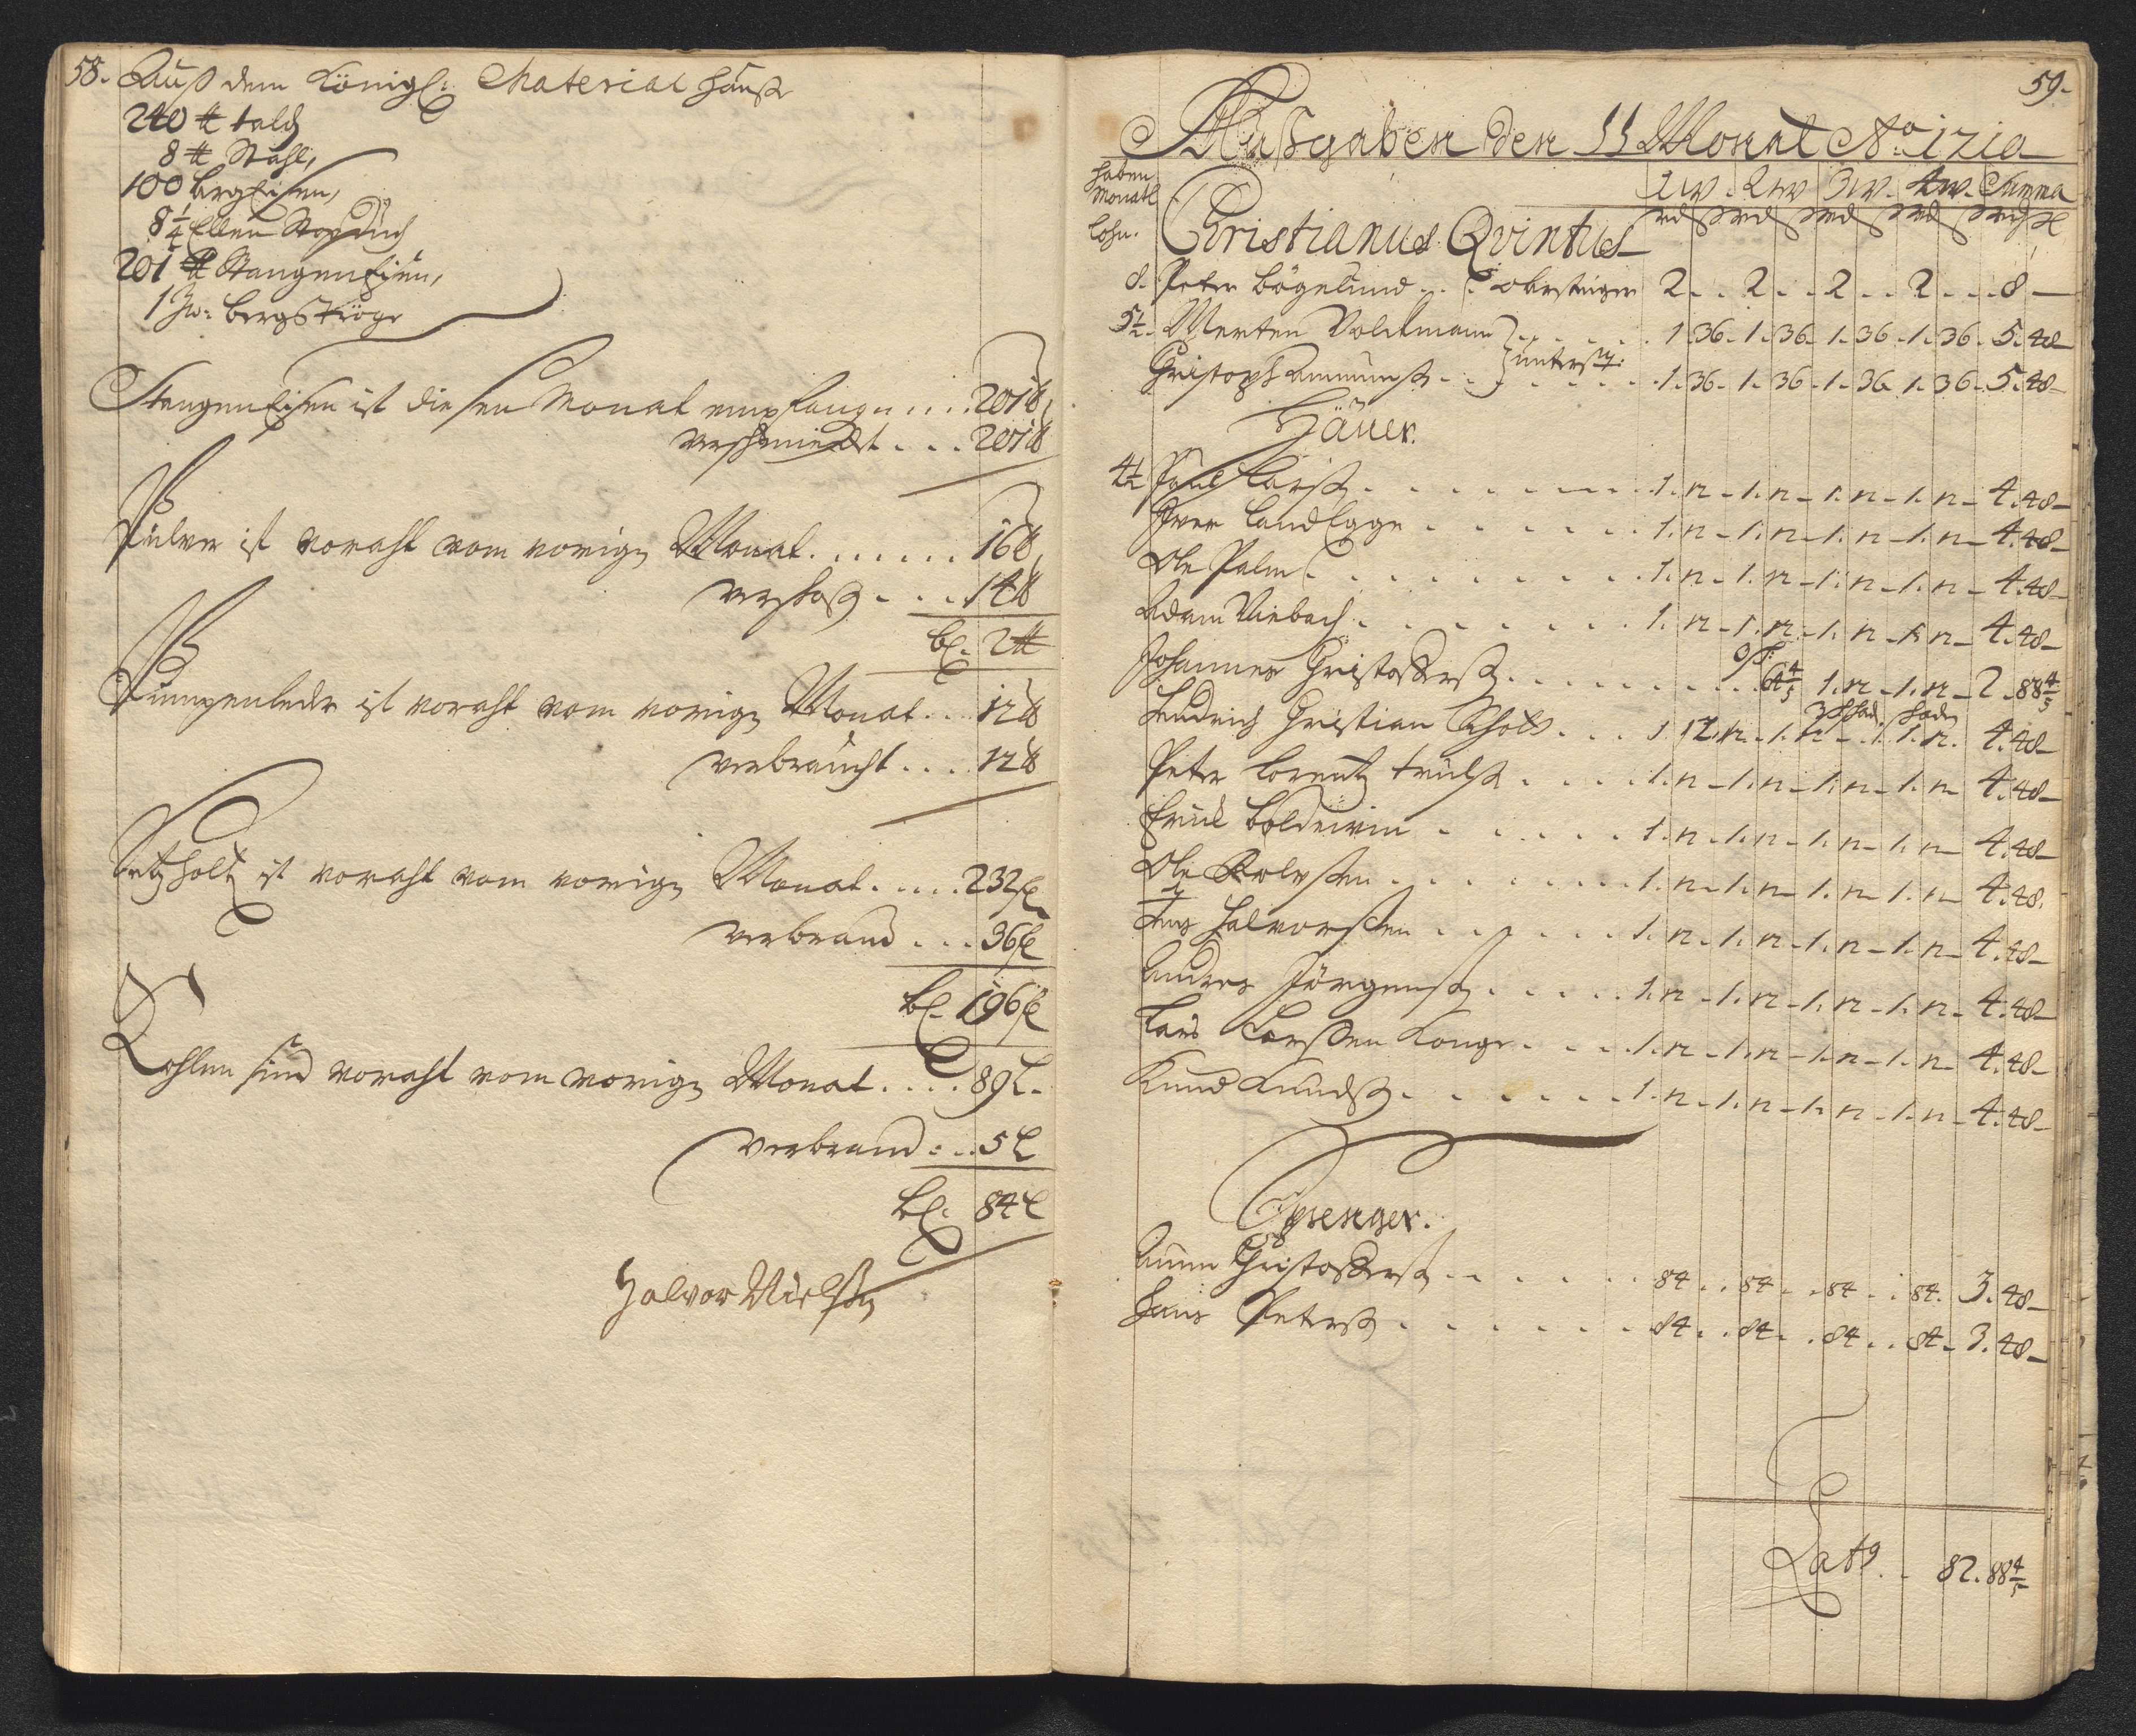 58. Auß dem Königl: Material Hauße
240 ℔ talch
8 ℔ Stahl,
100 Bergeisen,
8 1/4 Ellen
201 ℔ Stangen Eisen,
1 Zw: Bergströge
Stangen Eisen ist diesen Monat empfangen .... 201 ℔
verschmiedet ... 201 ℔
Pulver ist voraht vom vorigen Monat ...... 16 ℔,
verschoßen ... 14 ℔
bl. 2 ℔
Pumpenleder ist voraht vom vorigen Monat ... 12 ℔
verbraucht .... 12 ℔
Setzholtz ist voraht vom vorigen Monat ..... 232
verbrand ... 36
bl. 196
Kohlen sind voraht vom vorigen Monat .... 89 L.
verbrand ... 5 L
bl. 84 L
Halvor Nielßen
59.
Außgaben den 11 Monat Ao 1710
haben Monatl Lohn.
1 W. 2 W 3 W. 4 W. Summa
Christianus Qvintus
8. Peter Bögelund ... obersteiger 2 .. 2 .. 2 .. 2 ... 8 —
5 1/2. Merten Voldtmann . . . . . 1. 36. 1. 36. 1. 36. 1. 36. 5. 48
Christoph Ammunß . . . unterst: . . . 1. 36. 1. 36. 1. 36. 1. 36. 5. 48
Häüer.
4 1/2 Poul Larß . . . . . . 1. 12. 1. 12. 1. 12. 1. 12. 4. 48
Iver Landegge . . . . . . 1. 12. 1. 12. 1. 12. 1. 12. 4. 48
Ole Palm . . . . . . . . 1. 12. 1. 12. 1. 12. 1. 12. 4. 48
Adam Viebach . . . . . . . 1. 12. 1. 12. 1. 12. 1. 12. 4. 48
Johannes Christoffers . . . . . . . 64 4/5 1. 12. 1. 12. 2. 88 4/5
Hendrich Christian Scholtz . . . 1. 12. 1. 12. 1. 12. 4. 48
Peter Lorentz . . . . 1. 12. 1. 12. 1. 12. 1. 12. 4. 48
Boldewin . . . . . . 1. 12. 1. 12. 1. 12. 1. 12. 4. 48
Ole Rolvßen . . . . . . . 1. 12. 1. 12. 1. 12. 1. 12. 4. 48.
Jens Halvorßen . . . . . . 1. 12. 1. 12. 1. 12. 1. 12. 4. 48
Anders Jörgenß . . . . . 1. 12. 1. 12. 1. 12. 1. 12. 4. 48
Lars Larßen Konge . . . . 1. 12. 1. 12. 1. 12. 1. 12. 4. 48
Knud Knudß . . . . . . 1. 12. 1. 12. 1. 12. 1. 12. 4. 48
Opsenger.
Amun Christoffers . . . . . . 84 . . 84 . . 84 . . 84. 3. 48
Hans Peterß . . . . . . 84 . . 84 . . 84 . . 84. 3. 48
Latg. . 82. 88 4/5